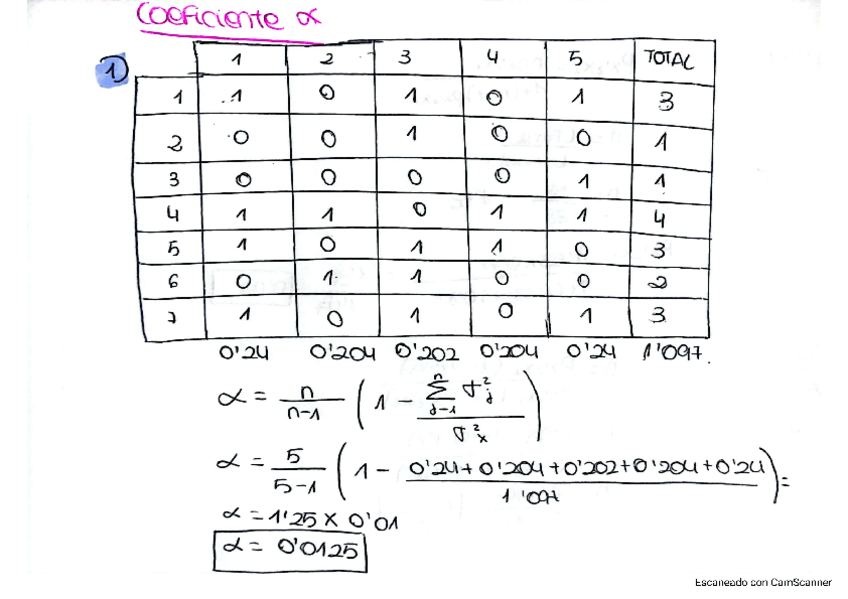 Coeficiente α
1)
1 2 3 4 5 TOTAL
1 1 0 1 0 1 3
2 0 0 1 0 0 1
3 0 0 0 0 1 1
4 1 1 0 1 1 4
5 1 0 1 1 0 3
6 0 1 1 0 0 2
7 1 0 1 0 1 3
0'24 0'204 0'202 0'204 0'24 1'097.
α = n / n-1 ( 1 - Σ n j-1 σ²j / σ²x )
α = 5 / 5-1 ( 1 - 0'24 + 0'204 + 0'202 + 0'204 + 0'24 / 1'097 ) =
α = 1'25 x 0'01
α = 0'0125
Escaneado con CamScanner